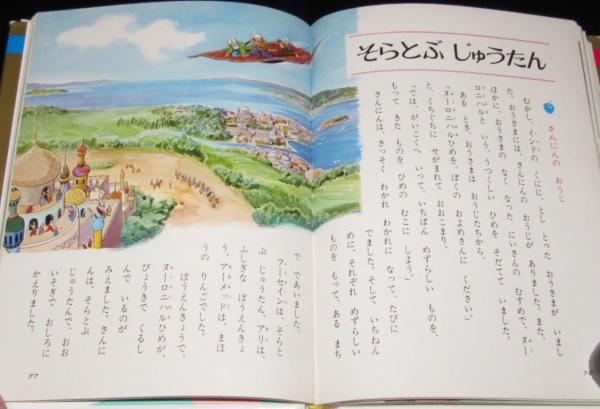 そらとぶ じゅうたん
さんにんの おうじ
むかし、インドの くにに、とし とった おうさまが いまし
た。おうさまには、さんにんの おうじが ありました。また、
ほかに、おうさまの なく なった にいさんの むすめで、ヌー
ロニハルと いう、うつくしい ひめを そだてて いました。
ある とき、おうさまは、おうじたちから、
「ヌーロニハルひめを、ぼくの およめさんに ください。」
と、くちぐちに せがまれて おおこまり。
「では、がいこくへ いって、いちばん めずらしい ものを、
もって きた ものを ひめの むこに しよう。」
さんにんは、さっそく わかれ わかれに なって、たびに
でました。そして いちねん
めに、それぞれ めずらしい
ものを もって、ある まち
で であいました。
フーセインは、そらと
ぶ じゅうたん、アリは、
ふしぎな ぼうえんきょ
う、アーメッドは、まほ
うの りんごでした。
ぼうえんきょうで、
ヌーロニハルひめが、
びょうきで くるし
んで いるのが
みえました。さんに
んは、そらとぶ
じゅうたんで、おお
いそぎで、おしろに
かえりました。
77